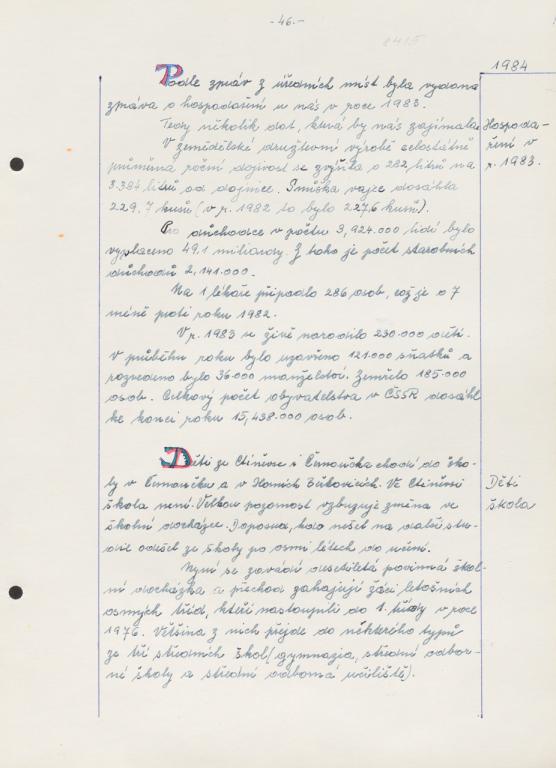 - 46. -
1984
Podle zpráv z úředních míst byla vydána
zpráva o hospodaření u nás v roce 1983.
Tedy několik dat, která by nás zajímala.
Hospoda-
ření v
r. 1983.
V zemědělské družstevní výrobě celostátně
průměrná roční dojivost se zvýšila o 282 litrů na
3.384 litrů od dojnice. Snůška vajec dosáhla
229,7 kusů (v r. 1982 to bylo 227,6 kusů).
Pro důchodce v počtu 3,924.000 lidí bylo
vyplaceno 49,1 miliardy. Z toho je počet starobních
důchodů 2,141.000.
Na 1 lékaře připadlo 286 osob, což je o 7
méně proti roku 1982.
V r. 1983 se živě narodilo 230.000 dětí.
V průběhu roku bylo uzavřeno 121.000 sňatků a
rozvedeno bylo 36.000 manželství. Zemřelo 185.000
osob. Celkový počet obyvatelstva v ČSSR dosáhl
ke konci roku 15,438.000 osob.
Děti ze Ctiněvse i Černoučka chodí do ško-
ly v Černoučku a v Horních Beřkovicích. Ve Ctiněvsi
škola není. Velkou pozornost vzbuzuje změna ve
školní docházce. Doposud, kdo nešel na další stu-
die odešel ze školy po osmi létech do učení.
Děti
škola
Nyní se zavádí desetiletá povinná škol-
ní docházka a přechod zahajují žáci letošních
osmých tříd, kteří nastoupili do 1. třídy v roce
1976. Většina z nich přejde do některého typů
ze tří středních škol (gymnazia, střední odbor-
né školy a střední odborná učiliště).